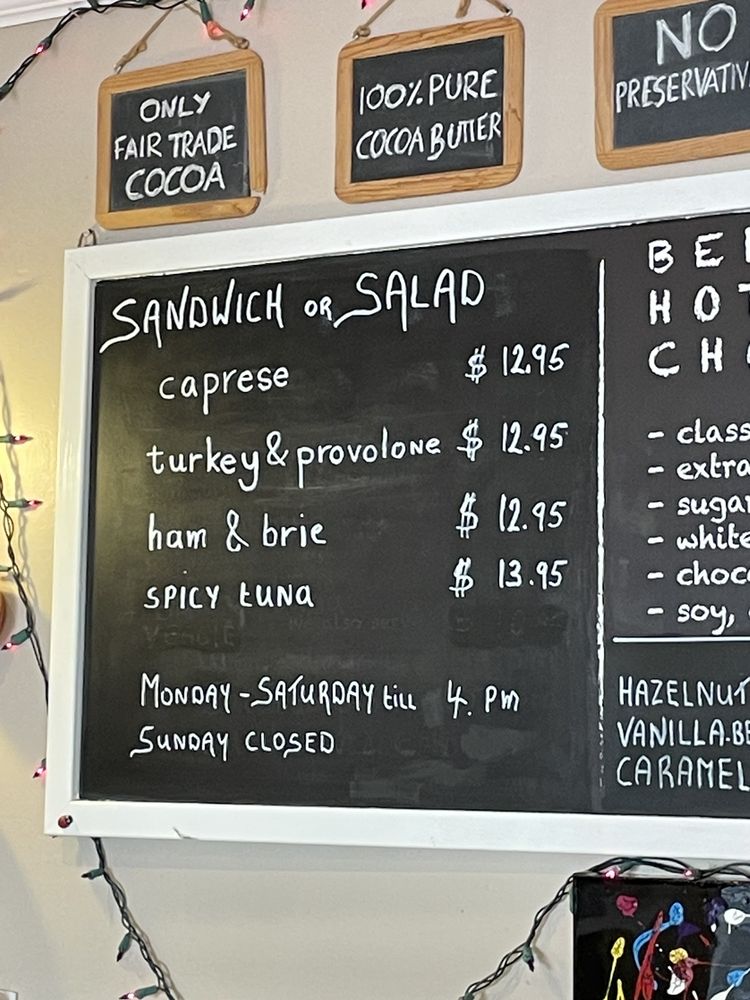 ONLY
FAIR TRADE
COCOA
100% PURE
COCOA BUTTER
NO
PRESERVATIV
SANDWICH OR SALAD
caprese $ 12.95
turkey & provolone $ 12.95
ham & brie $ 12.95
SPICY tuna $ 13.95
MONDAY - SATURDAY till 4. pm
SUNDAY CLOSED
BE
HOT
CH
- class
- extra
- sugar
- white
- choc
- soy,
HAZELNUT
VANILLA.BE
CARAMEL